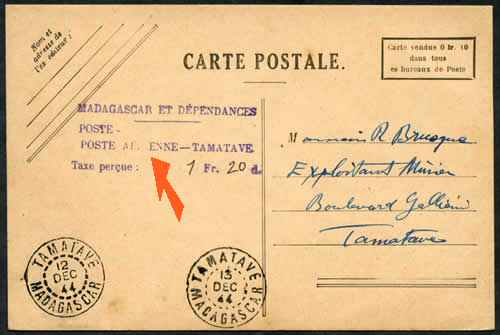 Nom et
adresse de
l'expéditeur :
CARTE POSTALE.
Carte vendue 0 fr. 10
dans tous
les bureaux de Poste
MADAGASCAR ET DÉPENDANCES
POSTE -
POSTE AÉ ENNE—TAMATAVE
Taxe perçue : 1 Fr. 20 c.
Monsieur R Brusque
Exploitant Minier
Boulevard Gallieni
Tamatave
TAMATAVE
12
DEC
44
MADAGASCAR
TAMATAVE
13
DEC
44
MADAGASCAR